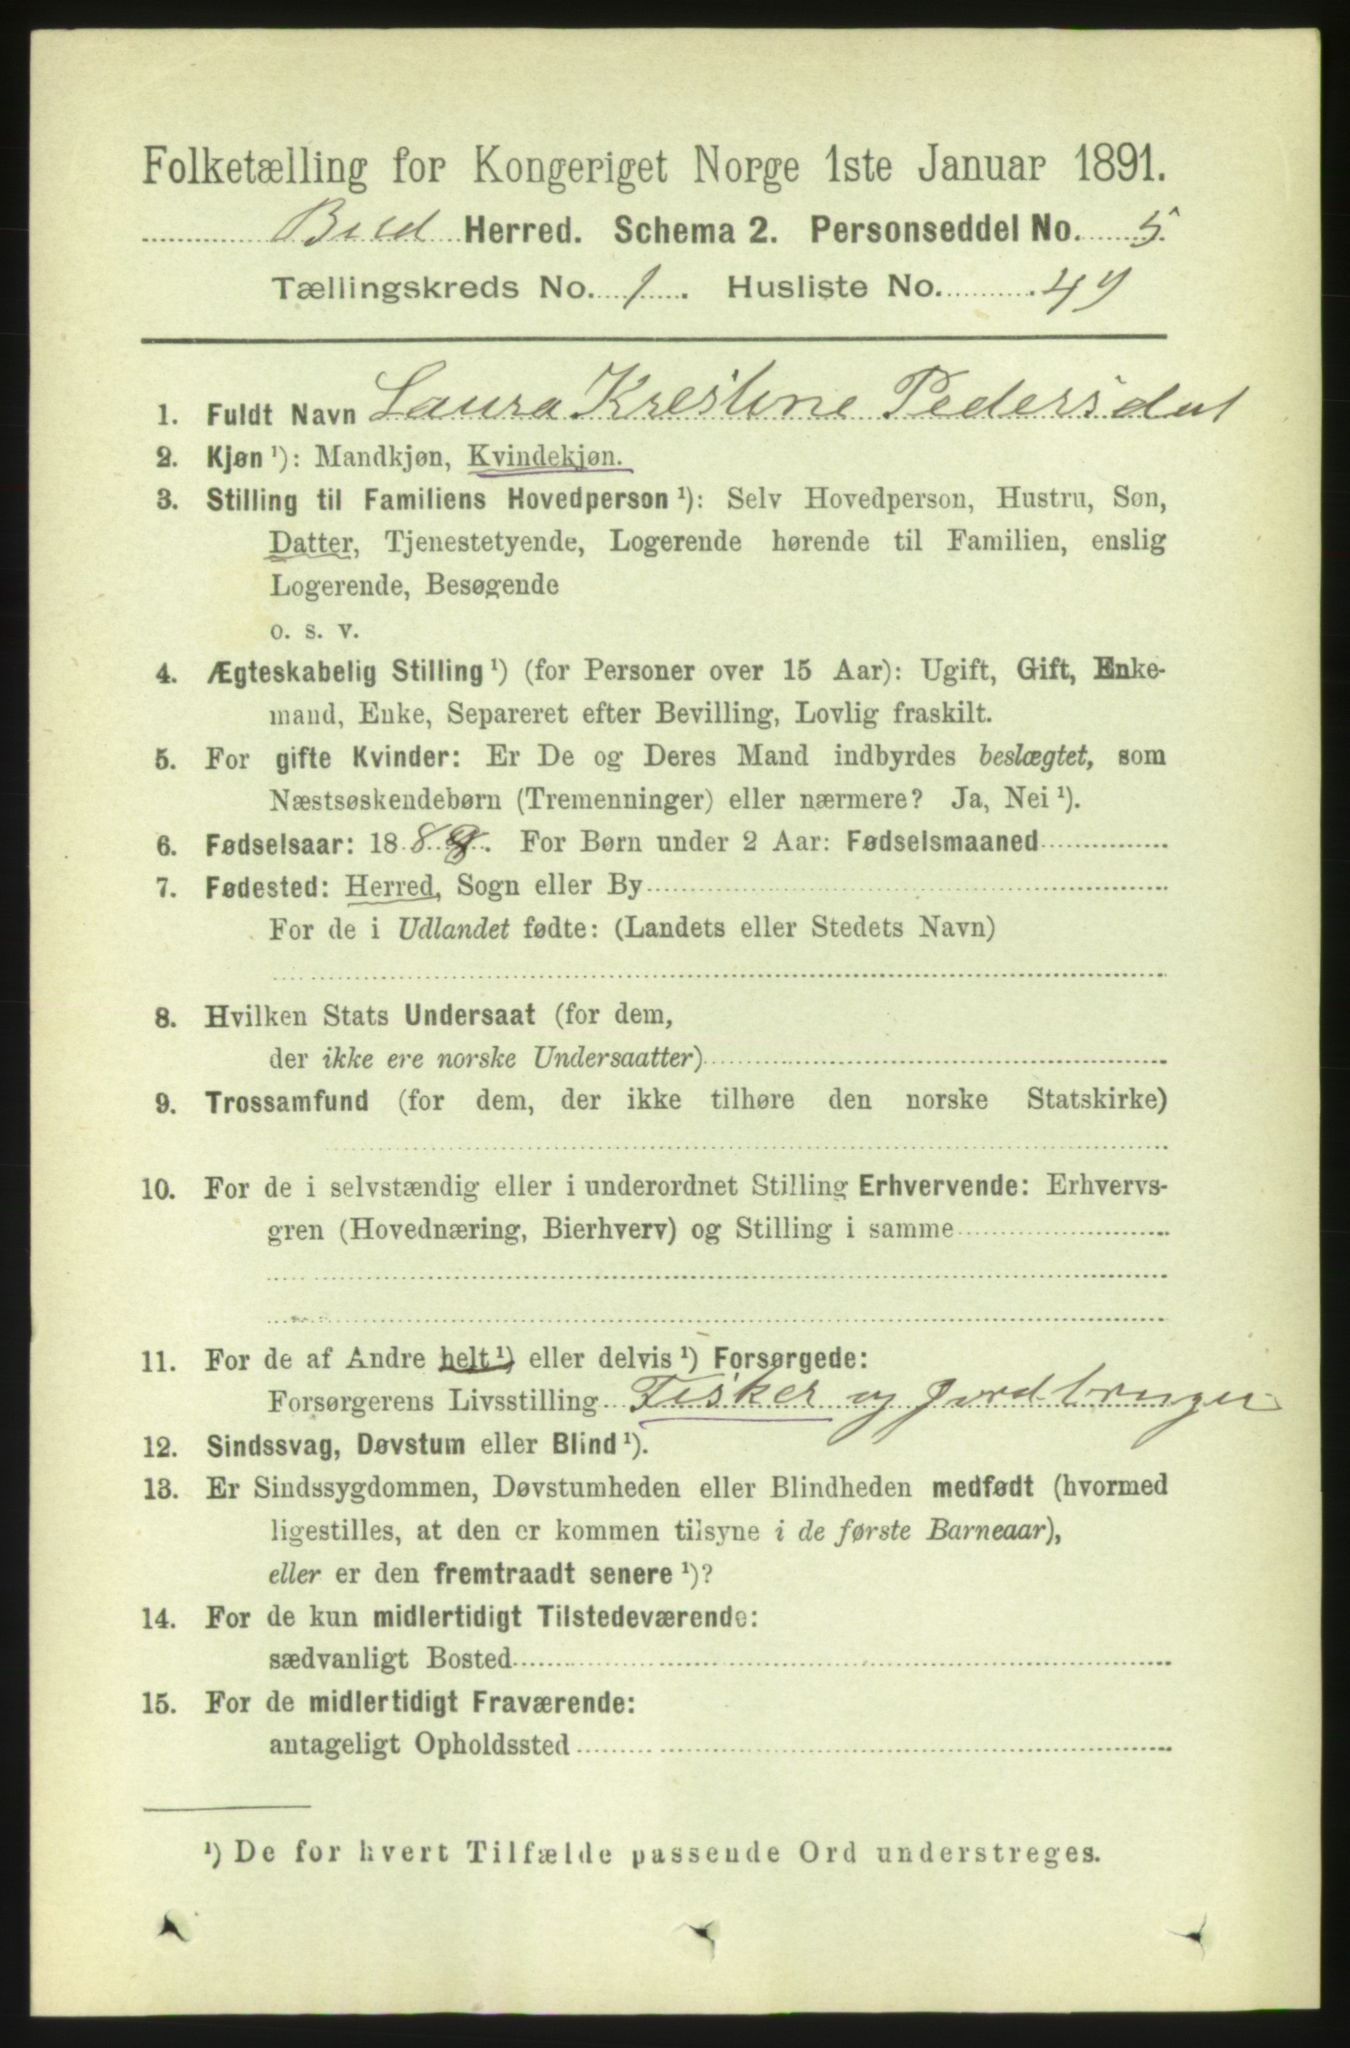 Folketælling for Kongeriget Norge 1ste Januar 1891.
Bud Herred. Schema 2. Personseddel No. 5.
Tællingskreds No. 1. Husliste No. 49
1. Fuldt Navn Laura Krestine Pedersdat
2. Kjøn ¹): Mandkjøn, Kvindekjøn.
3. Stilling til Familiens Hovedperson ¹): Selv Hovedperson, Hustru, Søn,
Datter, Tjenestetyende, Logerende hørende til Familien, enslig
Logerende, Besøgende
o. s. v.
4. Ægteskabelig Stilling ¹) (for Personer over 15 Aar): Ugift, Gift, Enke-
mand, Enke, Separeret efter Bevilling, Lovlig fraskilt.
5. For gifte Kvinder: Er De og Deres Mand indbyrdes beslægtet, som
Næstsøskendebørn (Tremenninger) eller nærmere? Ja, Nei ¹).
6. Fødselsaar: 188 . For Børn under 2 Aar: Fødselsmaaned
7. Fødested: Herred, Sogn eller By
For de i Udlandet fødte: (Landets eller Stedets Navn)
8. Hvilken Stats Undersaat (for dem,
der ikke ere norske Undersaatter)
9. Trossamfund (for dem, der ikke tilhøre den norske Statskirke)
10. For de i selvstændig eller i underordnet Stilling Erhvervende: Erhvervs-
gren (Hovednæring, Bierhverv) og Stilling i samme
11. For de af Andre helt ¹) eller delvis ¹) Forsørgede:
Forsørgerens Livsstilling Fisker og Jordbruger
12. Sindssvag, Døvstum eller Blind ¹).
13. Er Sindssygdommen, Døvstumheden eller Blindheden medfødt (hvormed
ligestilles, at den er kommen tilsyne i de første Barneaar),
eller er den fremtraadt senere ¹)?
14. For de kun midlertidigt Tilstedeværende:
sædvanligt Bosted
15. For de midlertidigt Fraværende:
antageligt Opholdssted
¹) De for hvert Tilfælde passende Ord understreges.